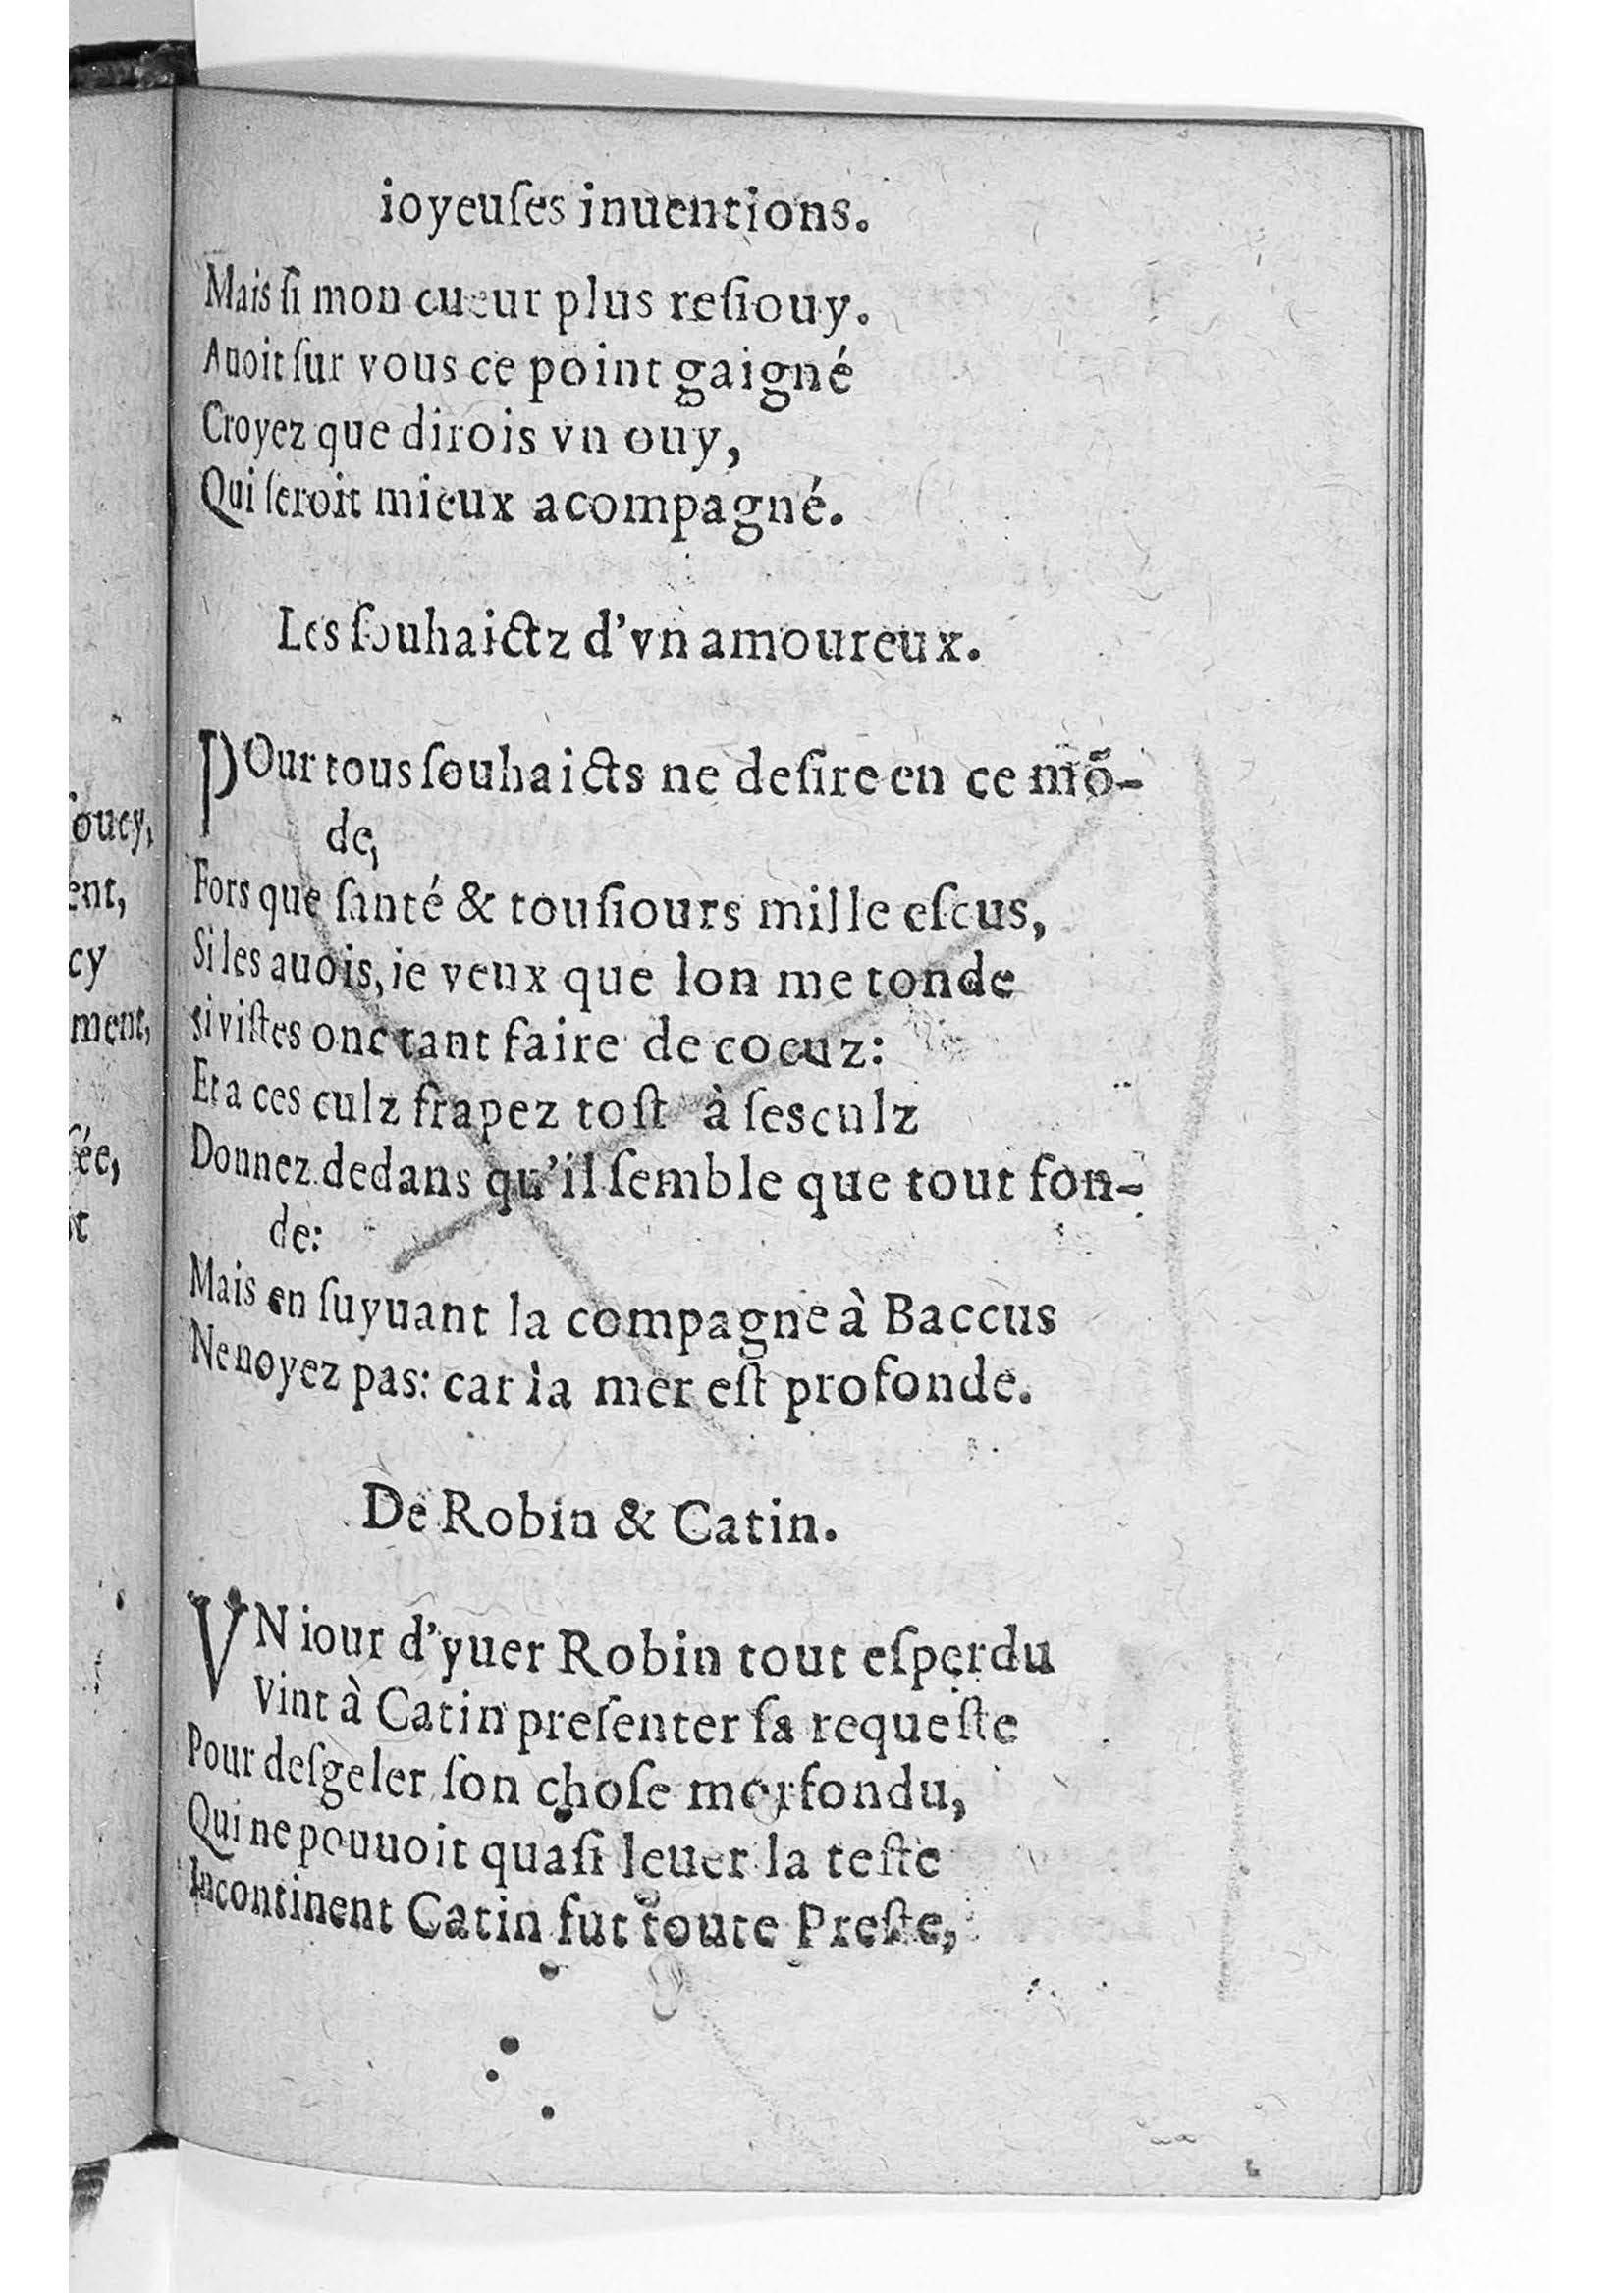 ioyeuſes inuentions.
Mais ſi mon cueur plus reſiouy.
Auoit ſur vous ce point gaigné
Croyez que dirois vn ouy,
Qui ſeroit mieux acompagné.
Les ſouhaictz d'vn amoureux.
POur tous ſouhaicts ne deſire en ce mõ-
de,
Fors que ſanté & touſiours mille eſcus,
Si les auois, ie veux que lon me tonde
ſi viſtes onc tant faire de cocuz:
Et a ces culz frapez toſt à ſesculz
Donnez dedans qu'il ſemble que tout fon-
de:
Mais en ſuyuant la compagne à Baccus
Ne noyez pas: car la mer eſt profonde.
De Robin & Catin.
VN iour d'yuer Robin tout eſperdu
Vint à Catin preſenter ſa requeſte
Pour deſgeler ſon choſe morfondu,
Qui ne pouuoit quaſi leuer la teſte
Incontinent Catin fut toute Preſte,
oucy,
ent,
cy
ment,
ſée,